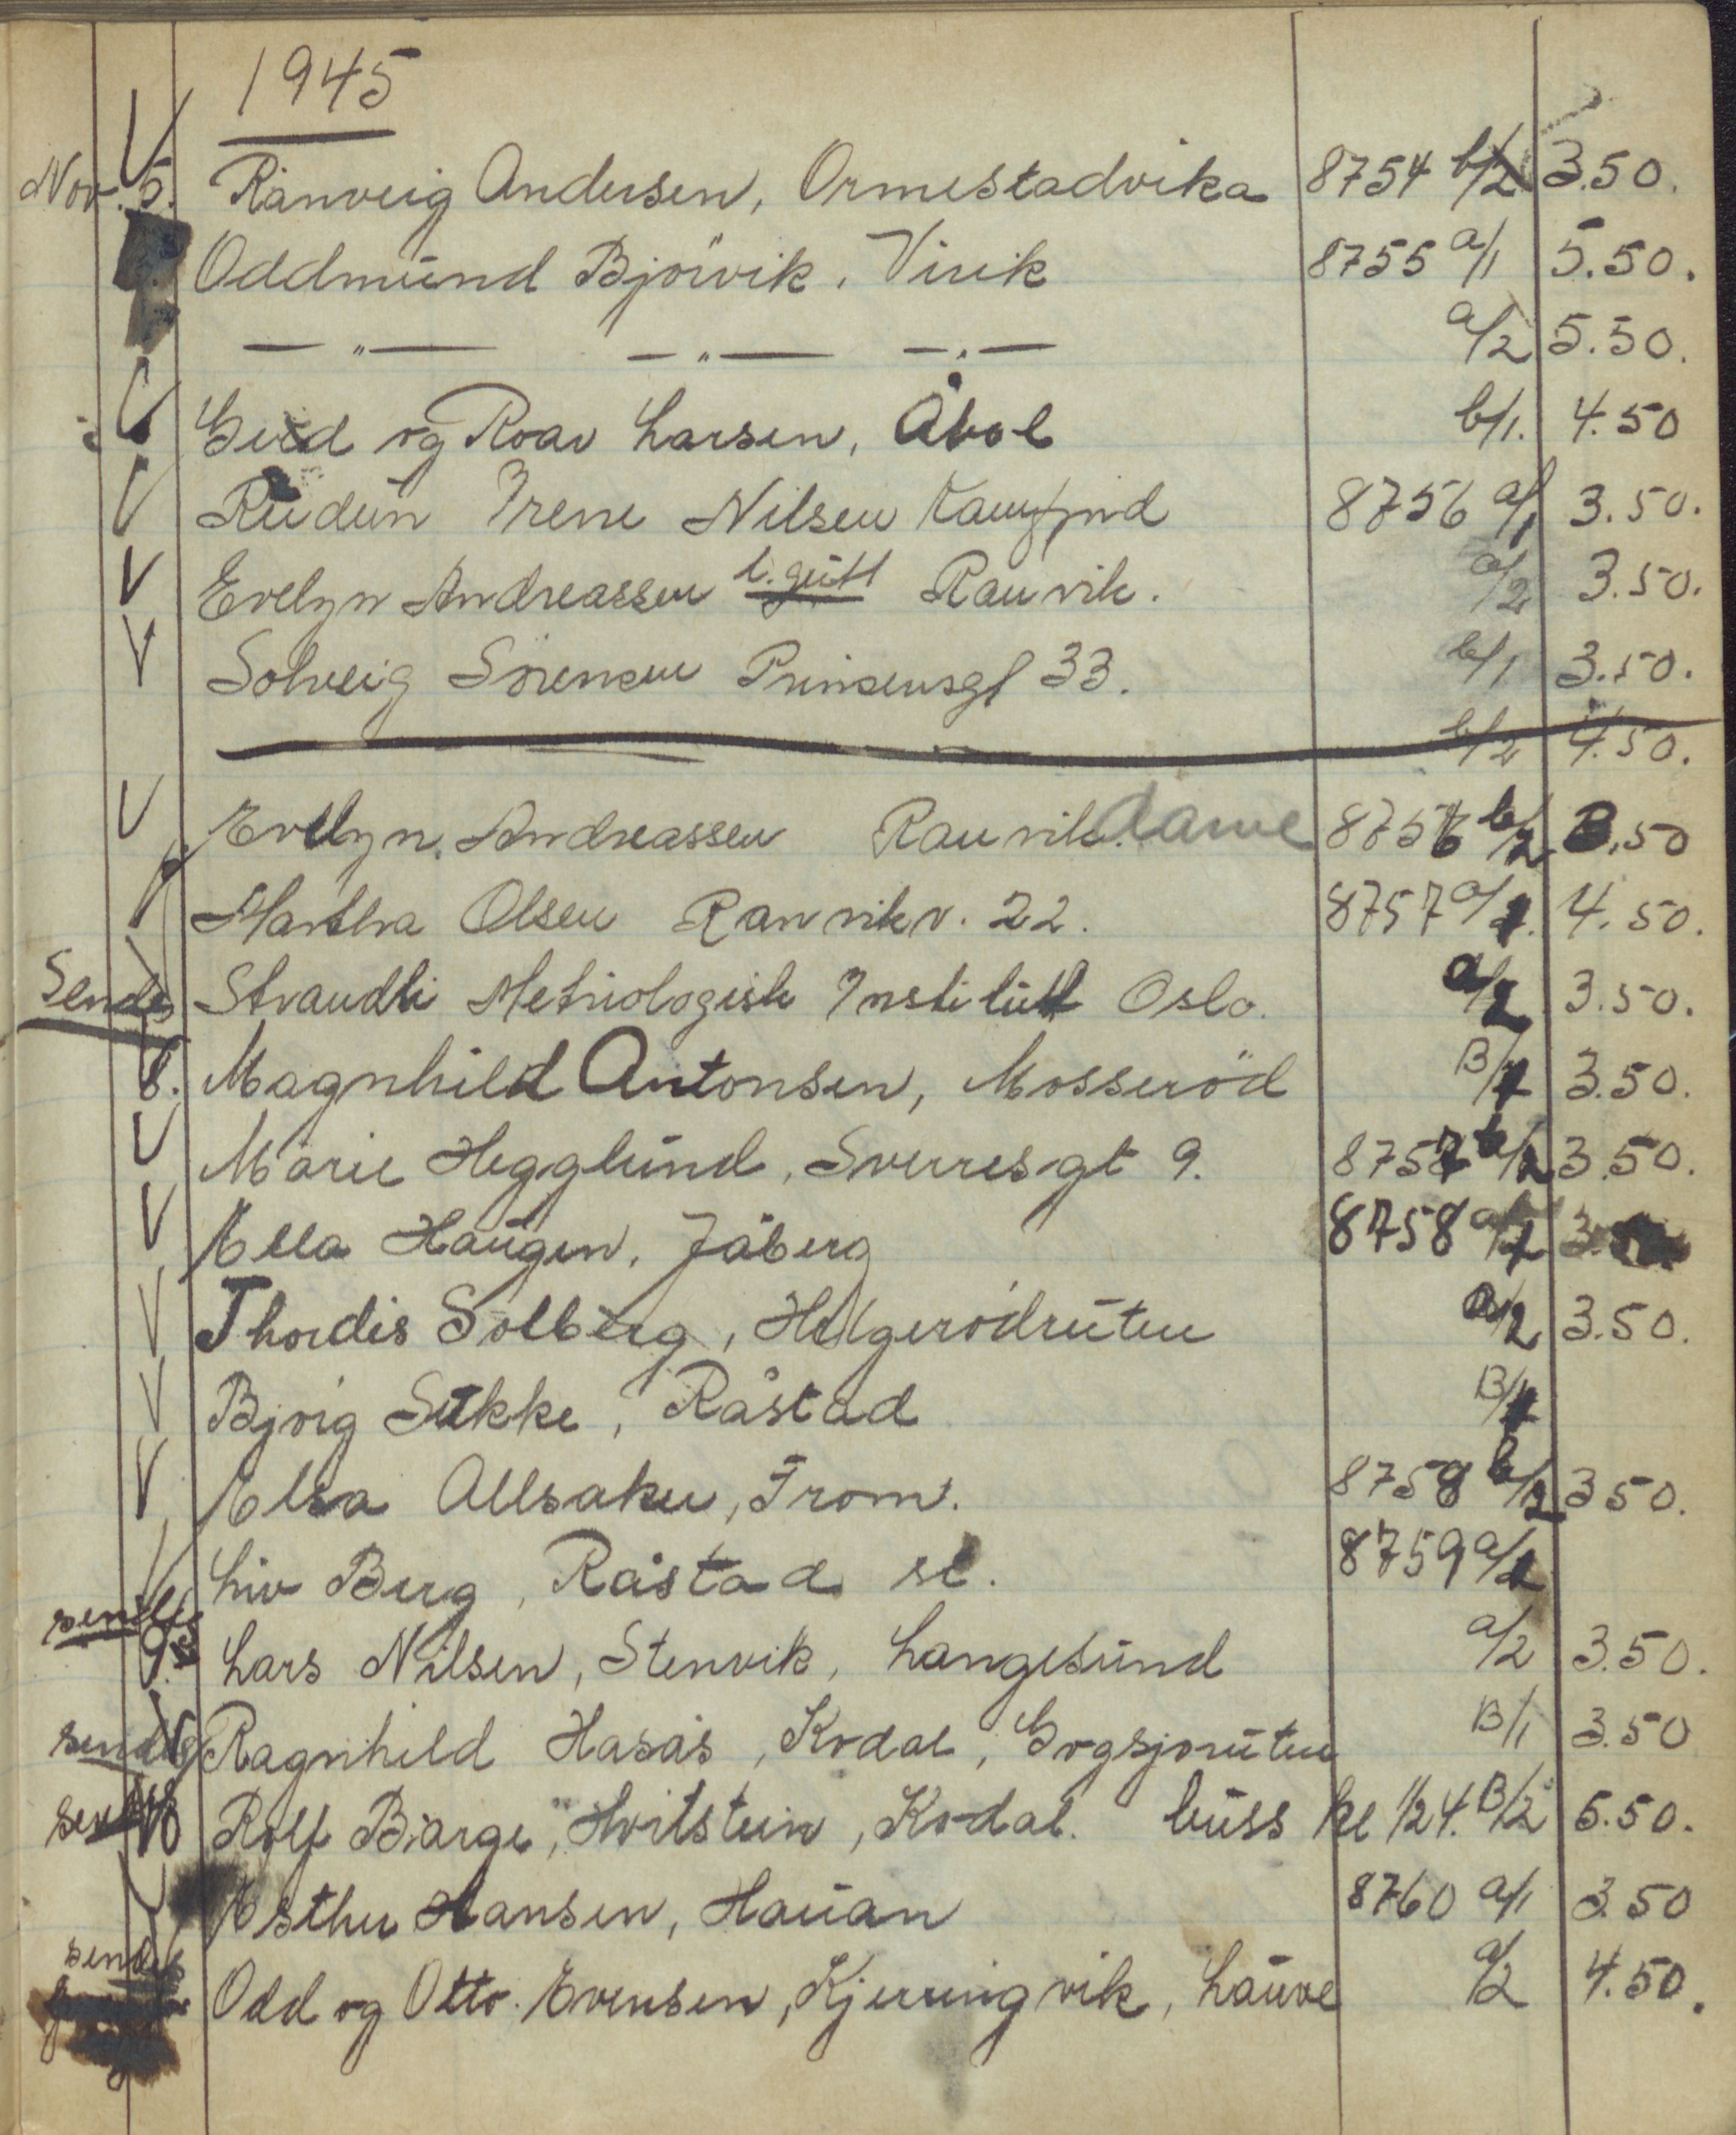 1945
Nov. 5. Ranveig Andersen, Ormestadvika 8754 b/2 3.50.
Oddmund Bjørvik, Virik 8755 a/1 5.50.
— " — — " — — " — a/2 5.50.
Gerd og Roar Larsen, Åbol b/1. 4.50
Rudun Irene Nilsen 8756 a/1 3.50.
Evelyn Andreassen l. gutt Rauvik. a/2 3.50.
Solveig Sörensen Prinsensgt 33. b/1 3.50.
b/2 4.50.
Evelyn Andreassen Rauvik. dame 8756 b/2 3.50
Martha Olsen Ranvikv. 22. 8757 a/1. 4.50.
Sendes Strandli Metriologisk Institutt Oslo. a/2 3.50.
8. Magnhild Antonsen, Mosseröd B/1 3.50.
Marie Hegglund, Sverresgt 9. 8757 b/2 3.50.
Ella Haugen, Jåberg 8758 a/1 3.
Thordis Solberg, Helgerödruten a/2 3.50.
Bjvig Sukke, Råstad B/1
Elsa Allsaker, From. 8758 b/2 3.50.
Liv Berg, Råstad st. 8759 a/1
sendes 9. Lars Nilsen, Stenvik, Langesund a/2 3.50.
sendes Ragnhild Hasås, Kodal, Gogsjøruten B/1 3.50
Rolf Bjarge, Hvitstein, Kodal. buss kl 1/2 4. B/2 5.50.
Esther Hansen, Hauan 8760 a/1 3.50
sendes Odd og Otto Evensen, Kjerringvik, Lauve a/2 4.50.